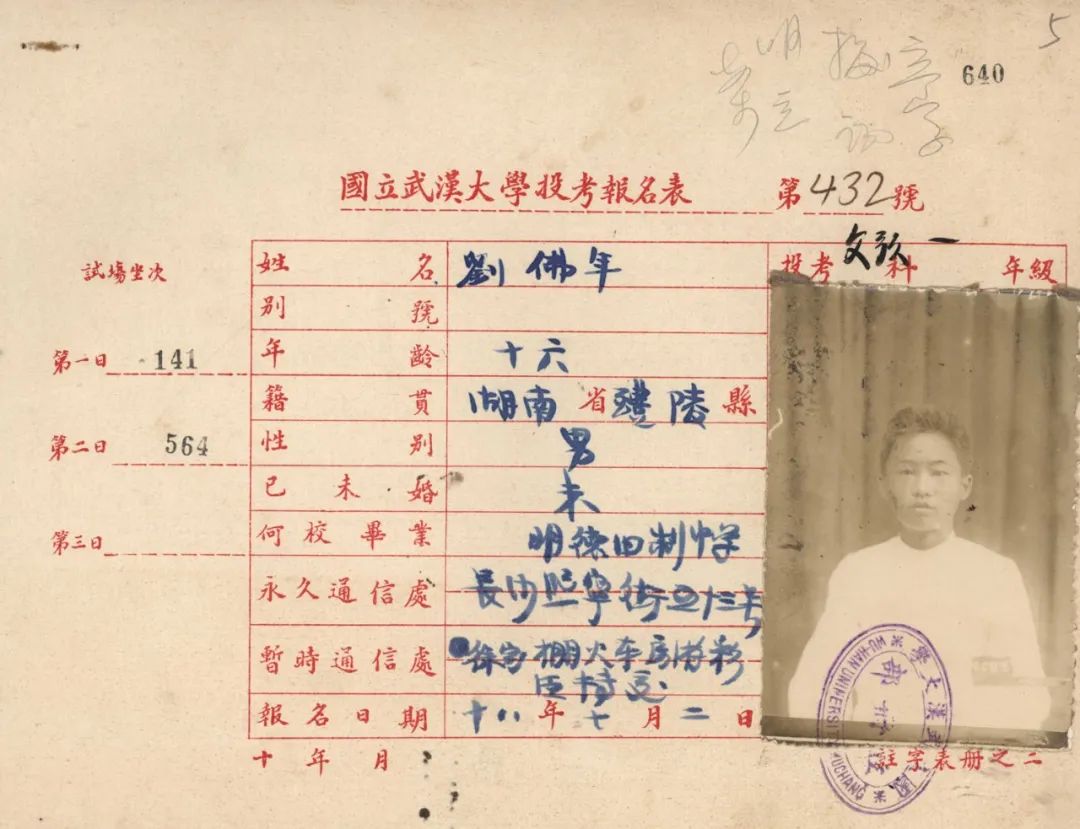 5
640
國立武漢大學投考報名表 第432號
試場坐次
第一日 141
第二日 564
第三日
投考 文預 科 一 年級
姓名 劉佛年
別號
年齡 十六
籍貫 湖南省醴陵縣
性別 男
已未婚 未
何校畢業 明德旧制中学
永久通信處 長沙熙寧街五十三号
暫時通信處 徐家棚火车房
報名日期 十八年七月二日
十年月
註字表册之二
WU-HAN UNIVERSITY WUCHANG